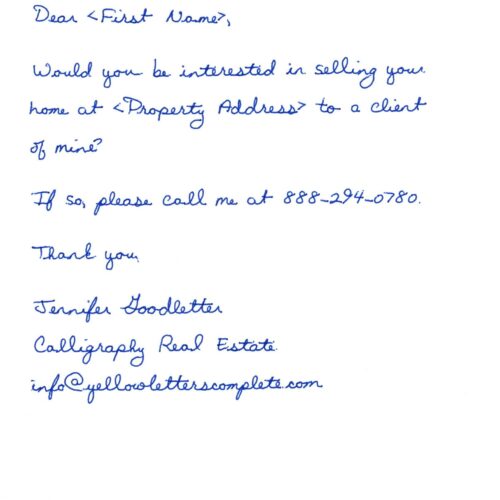 Dear <First Name>,
Would you be interested in selling your
home at <Property Address> to a client
of mine?
If so, please call me at 888-294-0780.
Thank you,
Jennifer Goodletter
Calligraphy Real Estate
info@yellowletterscomplete.com